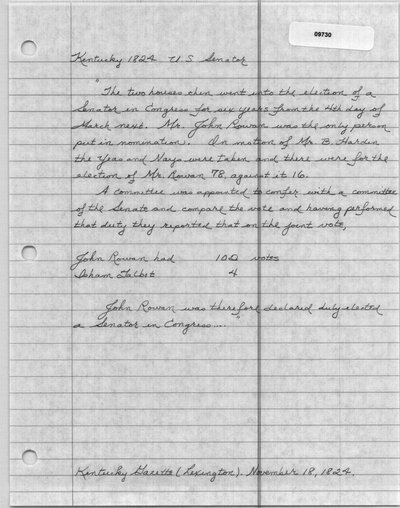 09730
Kentucky 1824 U S Senator
"The two houses then went into the election of a
Senator in Congress for six years from the 4th day of
March next. Mr. John Rowan was the only person
put in nomination. On motion of Mr. B. Hardin
the Yeas and Nays were taken and there were for the
election of Mr. Rowan 78, against it 16.
A committee was appointed to confer with a committee
of the Senate and compare the vote and having performed
that duty they reported that on the joint vote,
John Rowan had 100 votes
Isham Talbot 4
John Rowan was therefore declared duly elected
a Senator in Congress...."
Kentucky Gazette (Lexington). November 18, 1824.